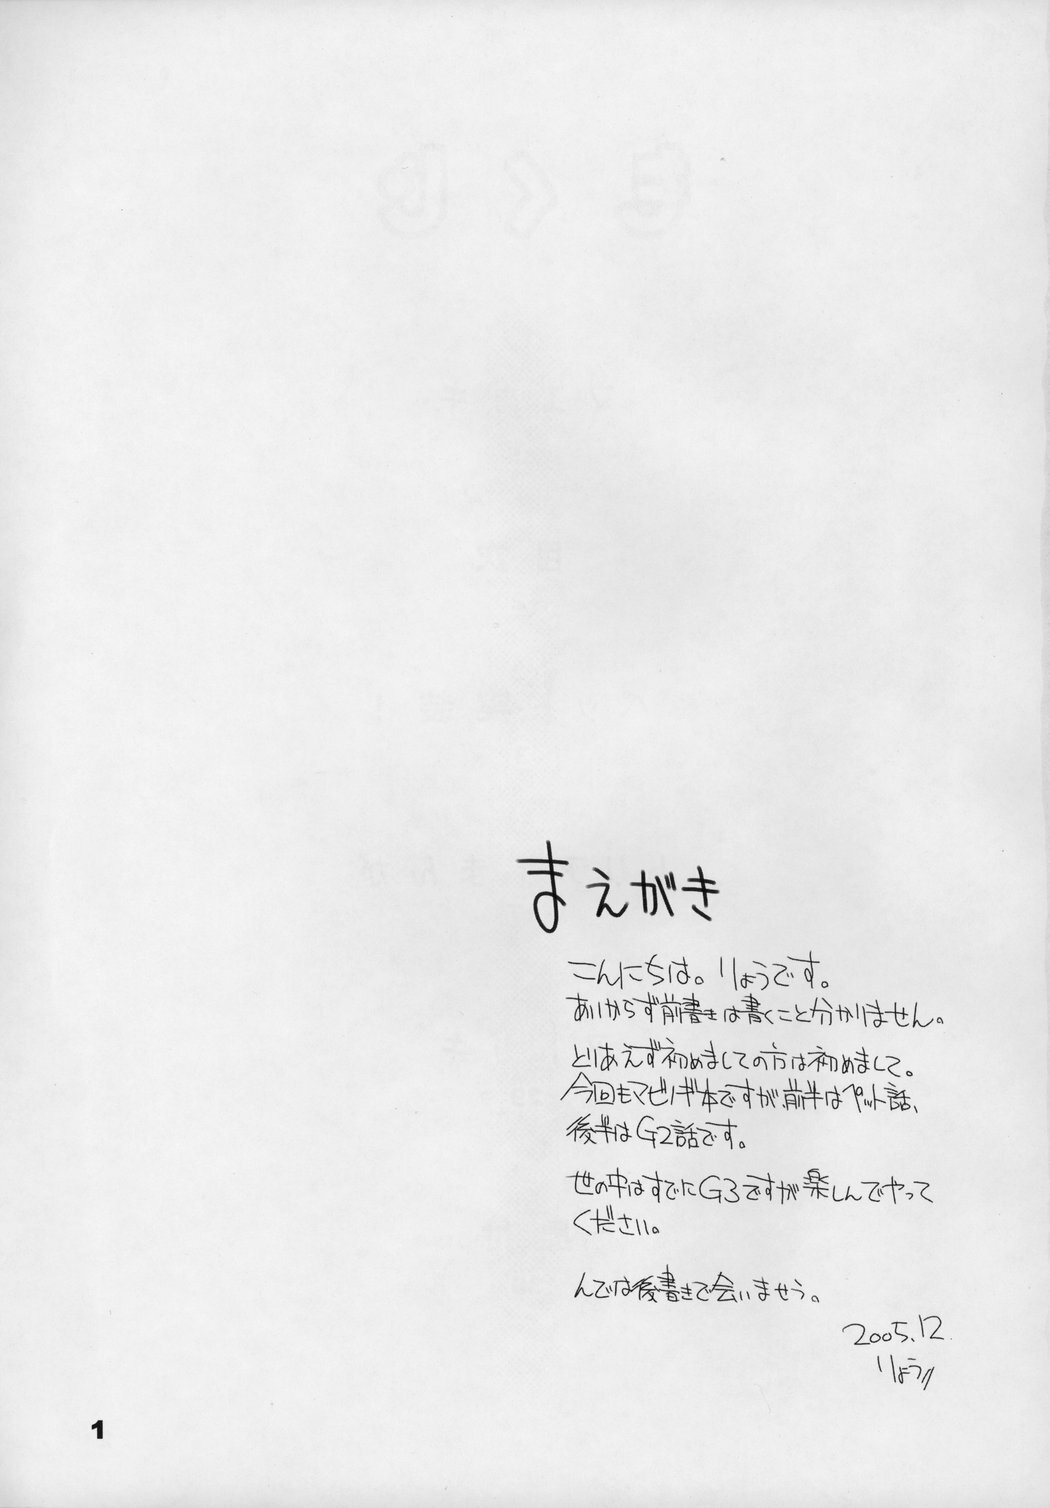 まえがき
こんにちは。りょうです。
あいかわらず前書きは書くこと分かりません。
とりあえず初めましての方は初めまして。
今回もマビノギ本ですが、前半はペット話、
後半はG2話です。
世の中はすでにG3ですが楽しんでやって
ください。
んでは後書きで会いませう。
2005.12.
りょう
1